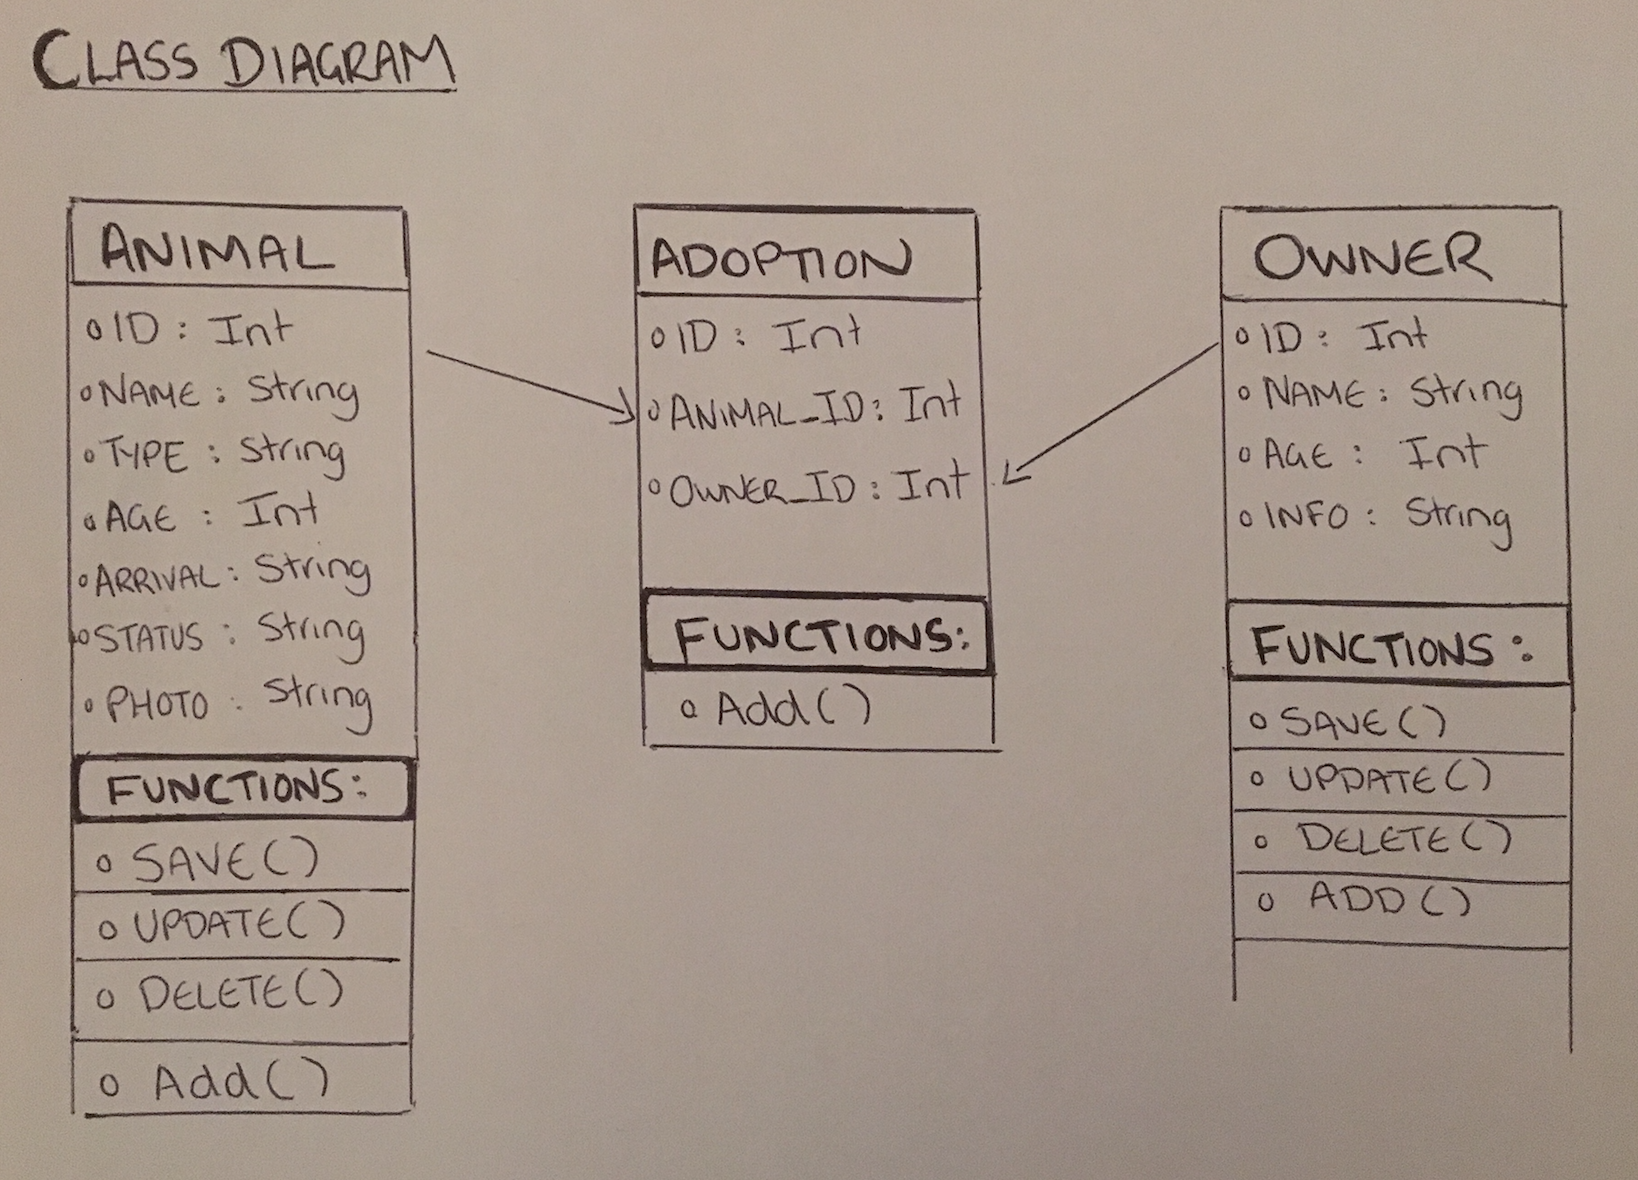 CLASS DIAGRAM
ANIMAL
ID : Int
NAME : String
TYPE : String
AGE : Int
ARRIVAL : String
STATUS : String
PHOTO : String
FUNCTIONS:
SAVE()
UPDATE()
DELETE()
Add()
ADOPTION
ID : Int
ANIMAL_ID : Int
OWNER_ID : Int
FUNCTIONS:
Add()
OWNER
ID : Int
NAME : String
AGE : Int
INFO : String
FUNCTIONS :
SAVE()
UPDATE()
DELETE()
ADD()